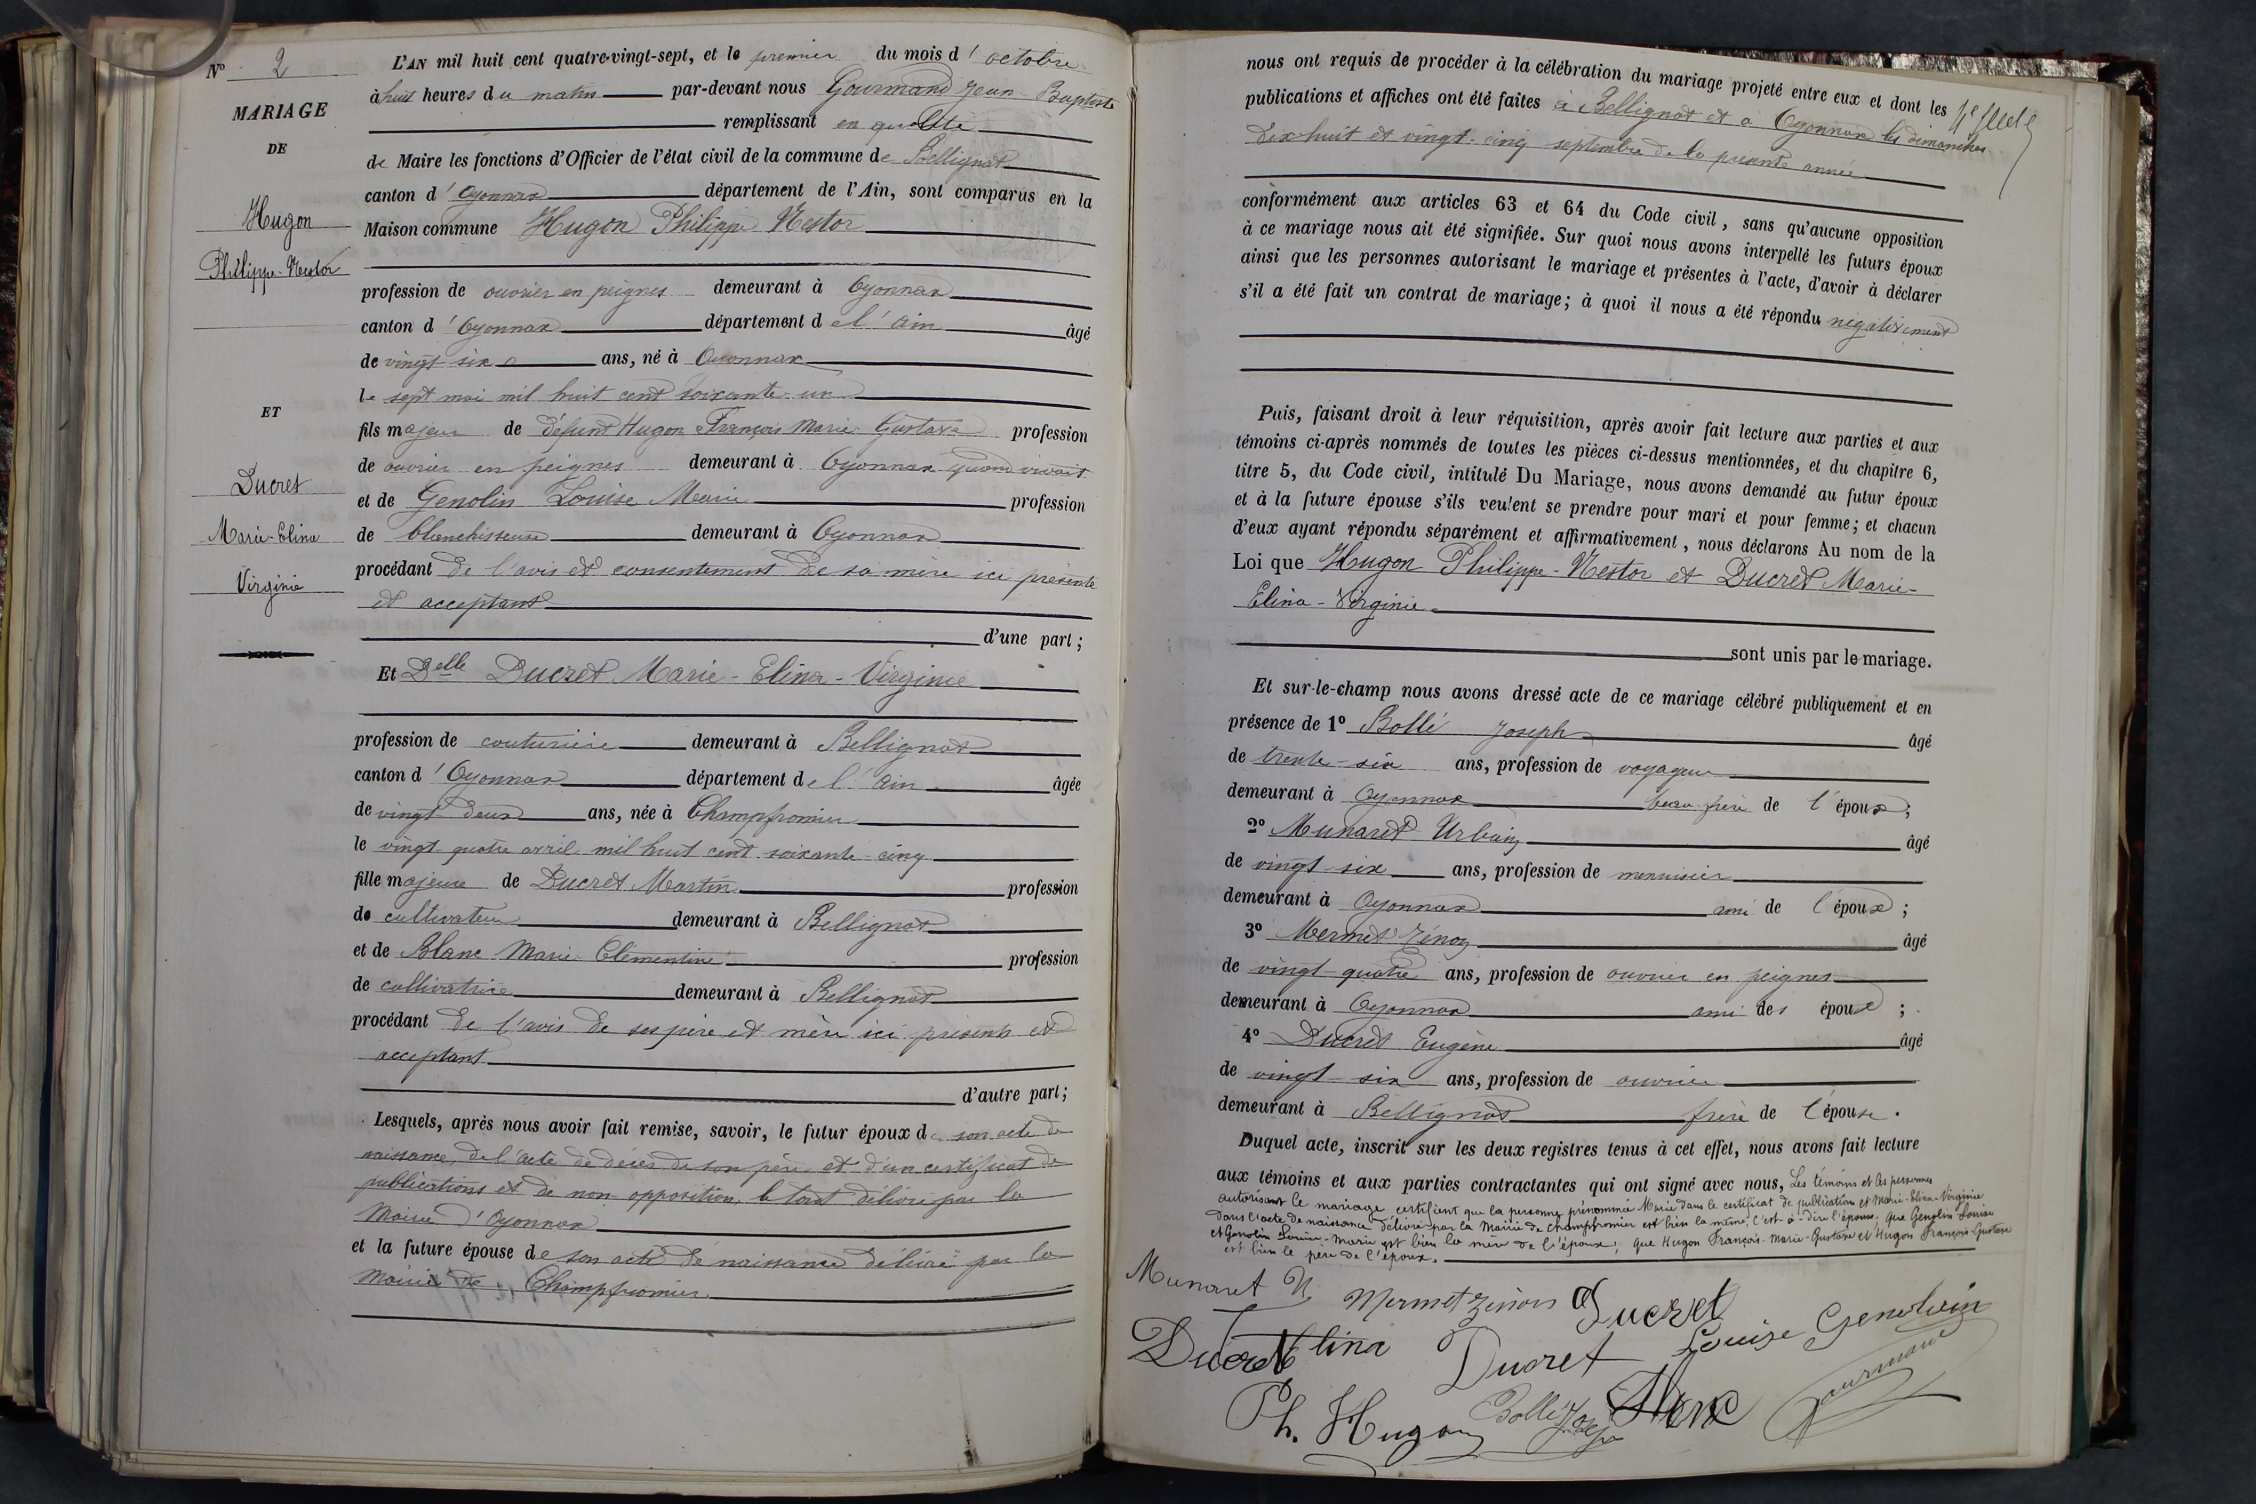 N° 2
MARIAGE
DE
Hugon
Philippe-Nestor
ET
Ducret
Marie-Elina
Virginie
L'AN mil huit cent quatre-vingt-sept, et le premier du mois d'octobre
à huit heures du matin par-devant nous Gourmand Jean Baptiste
remplissant en qualité
de Maire les fonctions d'Officier de l'état civil de la commune de Bellignat
canton d'Oyonnax département de l'Ain, sont comparus en la
Maison commune Hugon Philippe Nestor
profession de ouvrier en peignes demeurant à Oyonnax
canton d'Oyonnax département de l'Ain âgé
de vingt six ans, né à Oyonnax
le sept mai mil huit cent soixante-un
fils majeur de défunt Hugon François Marie Gustave profession
de ouvrier en peignes demeurant à Oyonnax quand vivait
et de Genolin Louise Marie profession
de blanchisseuse demeurant à Oyonnax
procédant de l'avis et consentement de sa mère ici présente
et acceptant
d'une part;
Et Delle Ducret Marie-Elina-Virginie
profession de couturière demeurant à Bellignat
canton d'Oyonnax département de l'Ain âgée
de vingt deux ans, née à Champfromier
le vingt quatre avril mil huit cent soixante-cinq
fille majeure de Ducret Martin profession
de cultivateur demeurant à Bellignat
et de Blanc Marie Clémentine profession
de cultivatrice demeurant à Bellignat
procédant de l'avis de ses père et mère ici présents et
acceptant
d'autre part;
Lesquels, après nous avoir fait remise, savoir, le futur époux de son acte de
naissance, de l'acte de décès de son père et d'un certificat de
publications et de non opposition, le tout délivré par la
Mairie d'Oyonnax
et la future épouse de son acte de naissance délivré par la
Mairie de Champfromier
nous ont requis de procéder à la célébration du mariage projeté entre eux et dont les
publications et affiches ont été faites à Bellignat et à Oyonnax les dimanches
dix huit et vingt-cinq septembre de la présente année
conformément aux articles 63 et 64 du Code civil, sans qu'aucune opposition
à ce mariage nous ait été signifiée. Sur quoi nous avons interpellé les futurs époux
ainsi que les personnes autorisant le mariage et présentes à l'acte, d'avoir à déclarer
s'il a été fait un contrat de mariage; à quoi il nous a été répondu négativement
Puis, faisant droit à leur réquisition, après avoir fait lecture aux parties et aux
témoins ci-après nommés de toutes les pièces ci-dessus mentionnées, et du chapitre 6,
titre 5, du Code civil, intitulé Du Mariage, nous avons demandé au futur époux
et à la future épouse s'ils veulent se prendre pour mari et pour femme; et chacun
d'eux ayant répondu séparément et affirmativement, nous déclarons Au nom de la
Loi que Hugon Philippe-Nestor et Ducret Marie-
Elina-Virginie
sont unis par le mariage.
Et sur-le-champ nous avons dressé acte de ce mariage célébré publiquement et en
présence de 1° Bollé Joseph âgé
de trente-six ans, profession de voyageur
demeurant à Oyonnax beau-frère de l'époux;
2° Munaret Urbain âgé
de vingt-six ans, profession de menuisier
demeurant à Oyonnax ami de l'époux;
3° Mermet Zénon âgé
de vingt-quatre ans, profession de ouvrier en peignes
demeurant à Oyonnax ami des époux;
4° Ducret Eugène âgé
de vingt-six ans, profession de ouvrier
demeurant à Bellignat frère de l'épouse.
Duquel acte, inscrit sur les deux registres tenus à cet effet, nous avons fait lecture
aux témoins et aux parties contractantes qui ont signé avec nous, Les témoins et les personnes
autorisant le mariage certifient que la personne prénommée Marie dans le certificat de publications et Marie-Elina-Virginie
dans l'acte de naissance délivré par la Mairie de Champfromier est bien la même, c'est-à-dire l'épouse, que Genolin Louise
et Genolin Louise-Marie est bien la mère de l'époux; que Hugon François-Marie-Gustave et Hugon François-Gustave
est bien le père de l'époux.
Munaret U
Mermet Zénon
Ducret
Louise Genolin
Ducret Elina
Ducret
Gourmand
Ph. Hugon
Bollé Joseph
Blanc